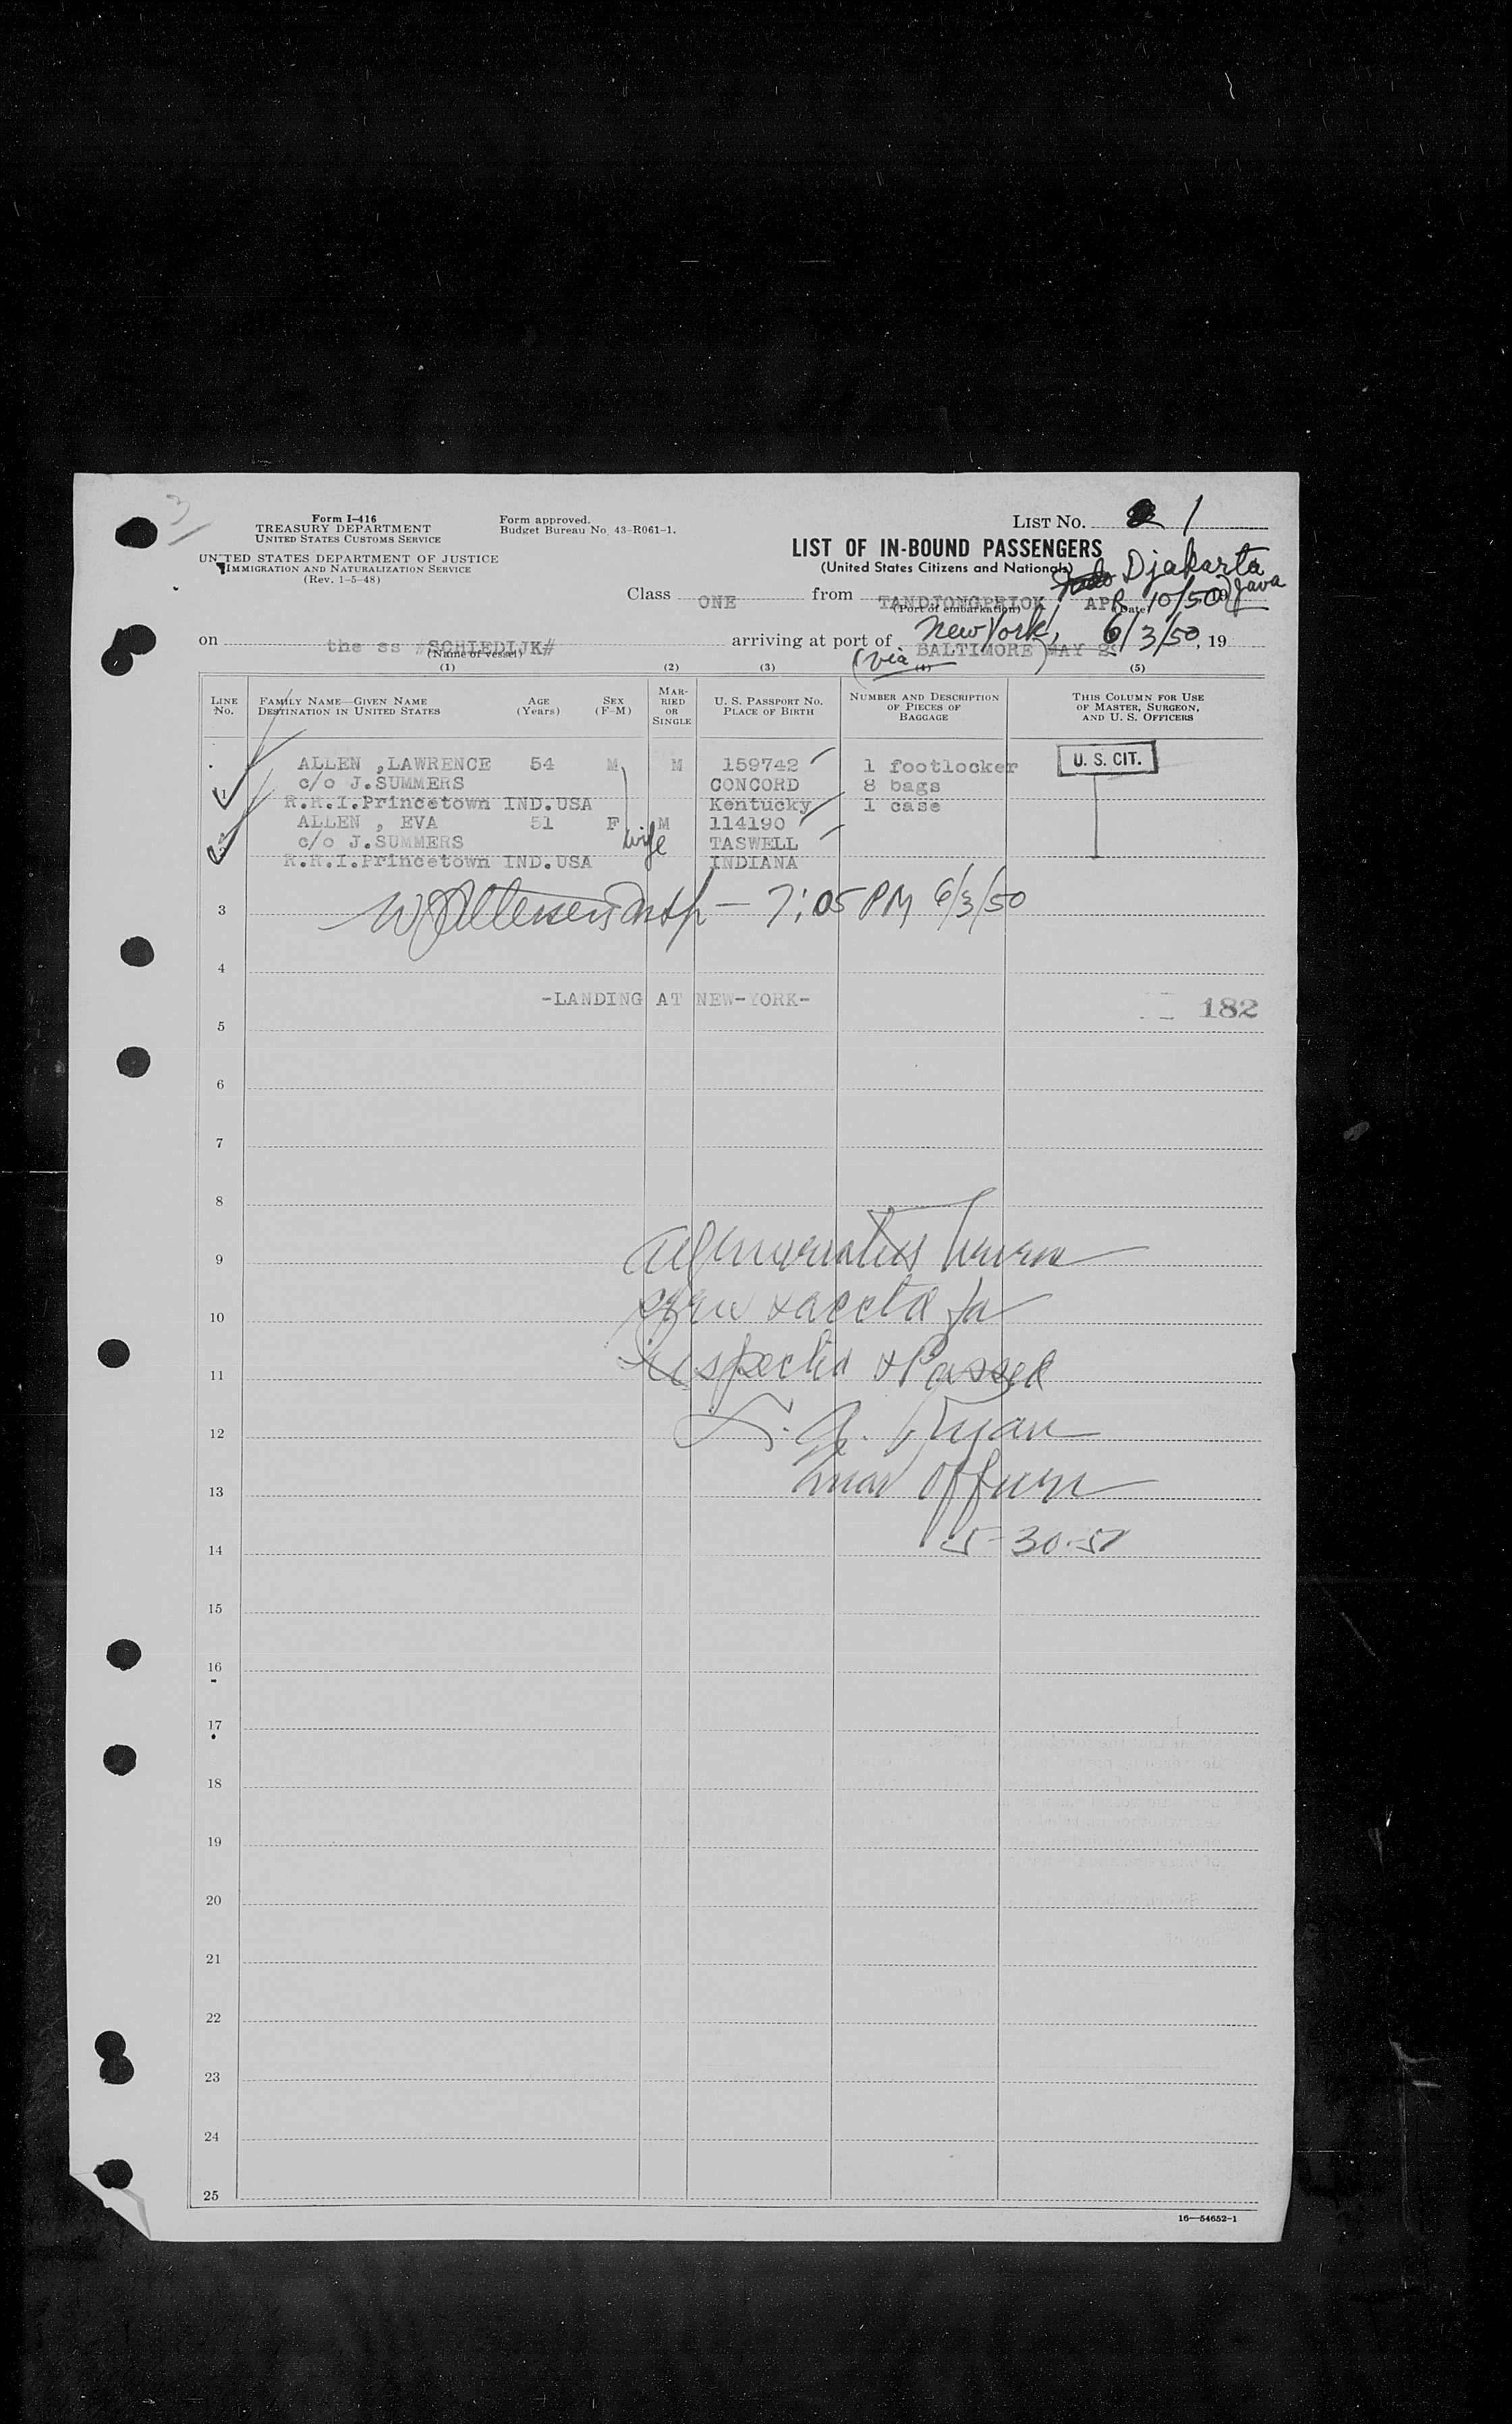 3
Form I-416
TREASURY DEPARTMENT
UNITED STATES CUSTOMS SERVICE
UNITED STATES DEPARTMENT OF JUSTICE
IMMIGRATION AND NATURALIZATION SERVICE
(Rev. 1-5-48)
Form approved.
Budget Bureau No. 43-R061-1.
LIST NO. 2 1
LIST OF IN-BOUND PASSENGERS
(United States Citizens and Nationals)
Djakarta
Java
Class ONE from TANDJONGPRIOK, APR 10/50, 19
(Port of embarkation) (Date)
on the ss #SCHIEDIJK# arriving at port of New York, 6/3/50, 19
(Name of vessel)
(via BALTIMORE) MAY 2
(1) (2) (3) (4) (5)
LINE NO. FAMILY NAME—GIVEN NAME DESTINATION IN UNITED STATES AGE (Years) SEX (F-M) MARRIED OR SINGLE U. S. PASSPORT NO. PLACE OF BIRTH NUMBER AND DESCRIPTION OF PIECES OF BAGGAGE THIS COLUMN FOR USE OF MASTER, SURGEON, AND U. S. OFFICERS
ALLEN ,LAWRENCE 54 M M 159742 1 footlocker U. S. CIT.
1 c/o J.SUMMERS CONCORD 8 bags
R.R.I.Princetown IND.USA Kentucky 1 case
ALLEN , EVA 51 F wife M 114190
2 c/o J.SUMMERS TASWELL
R.R.I.Princetown IND.USA INDIANA
3 Insp — 7:05 PM 6/3/50
4
-LANDING AT NEW-YORK- 182
5
6
7
8
9
10
11 Inspected & Passed
12 Ryan
13 officer
14 5-30-50
15
16
17
18
19
20
21
22
23
24
25
16—54652-1